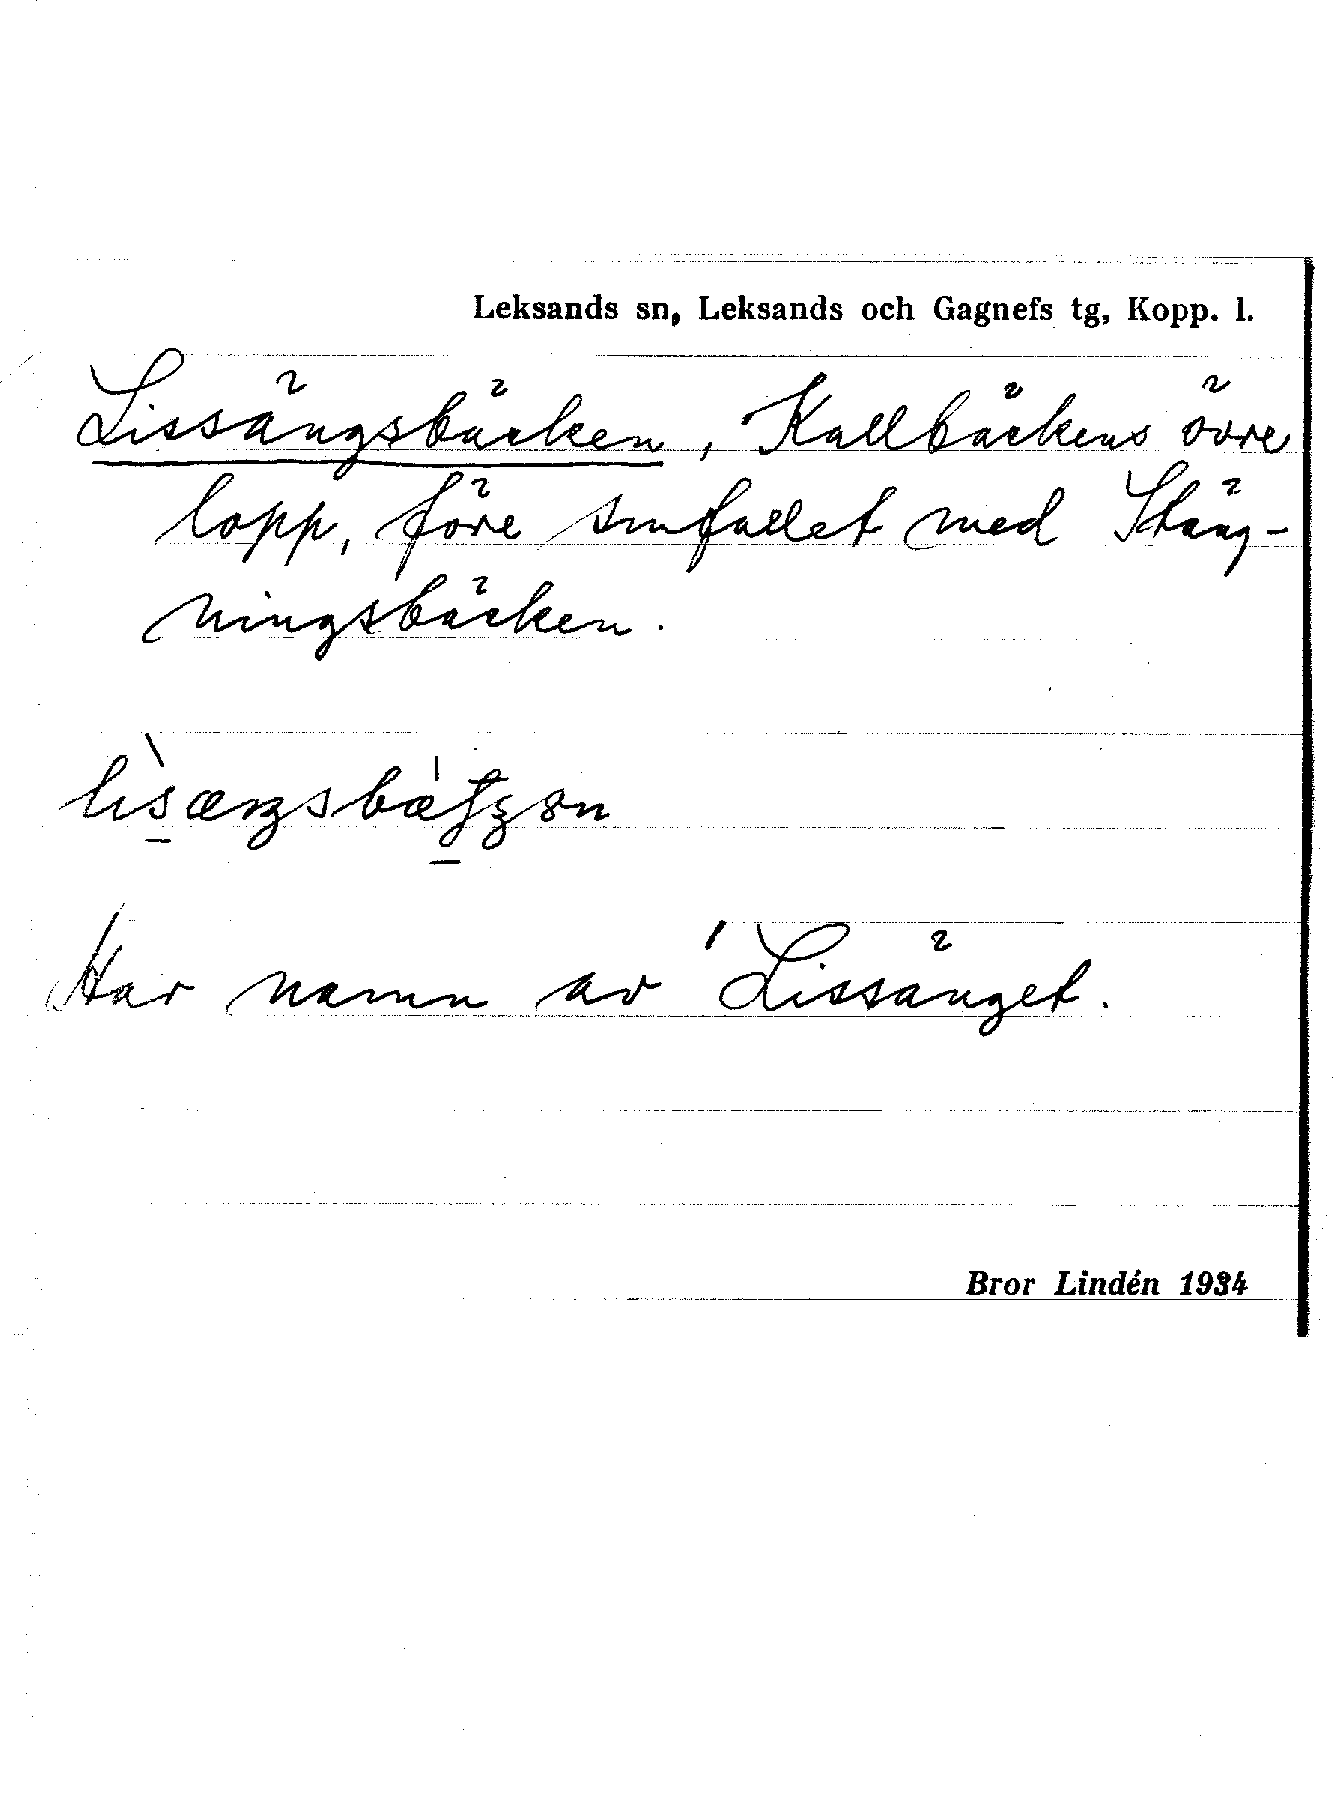 Leksands sn, Leksands och Gagnefs tg, Kopp. l.
Lissängsbäcken, Kallbäckens övre
lopp, före smfallet med Stäng-
ningsbäcken.
Har namn av 'Lissänget.
Bror Lindén 1934